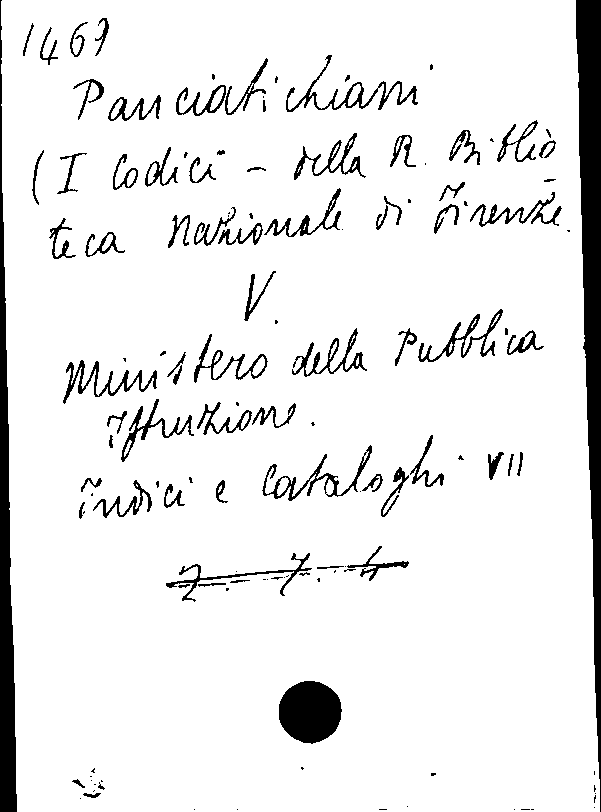 1469
Panciatichiani
(I Codici - della R. Biblio-
teca Nazionale di Firenze.
V.
Ministero della Pubblica
Istruzione.
Indici e Cataloghi VII
2. 7. 4